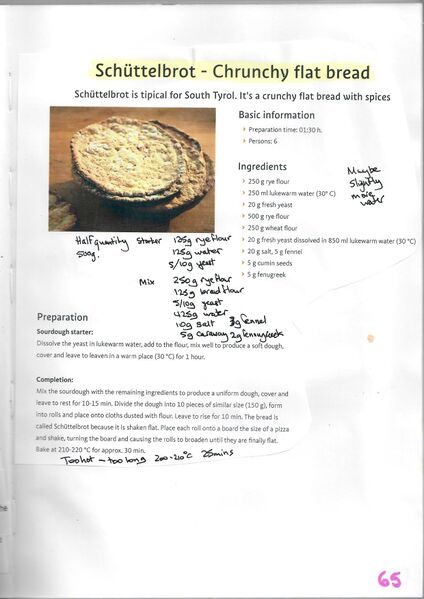 Schüttelbrot - Chrunchy flat bread
Schüttelbrot is tipical for South Tyrol. It's a crunchy flat bread with spices
Basic information
Preparation time: 01:30 h.
Persons: 6
Ingredients
250 g rye flour
250 ml lukewarm water (30° C)
20 g fresh yeast
500 g rye flour
250 g wheat flour
20 g fresh yeast dissolved in 850 ml lukewarm water (30 °C)
20 g salt, 5 g fennel
5 g cumin seeds
5 g fenugreek
Maybe
slightly
more
water
Half quantity Starter 125g rye flour
500g. 125g water
5/10g yeast
Mix 250g rye flour
125g bread flour
5/10g yeast
425g water
10g salt 3g fennel
5g caraway 2g fenugreek
Preparation
Sourdough starter:
Dissolve the yeast in lukewater, add to the flour, mix well to produce a soft dough,
cover and leave to leaven in a warm place (30 °C) for 1 hour.
Completion:
Mix the sourdough with the remaining ingredients to produce a uniform dough, cover and
leave to rest for 10-15 min. Divide the dough into 10 pieces of similar size (150 g), form
into rolls and place onto cloths dusted with flour. Leave to rise for 10 min. The bread is
called Schüttelbrot because it is shaken flat. Place each roll onto a board the size of a pizza
and shake, turning the board and causing the rolls to broaden until they are finally flat.
Bake at 210-220 °C for approx. 30 min.
Too hot - too long 200-210°C 25mins
65